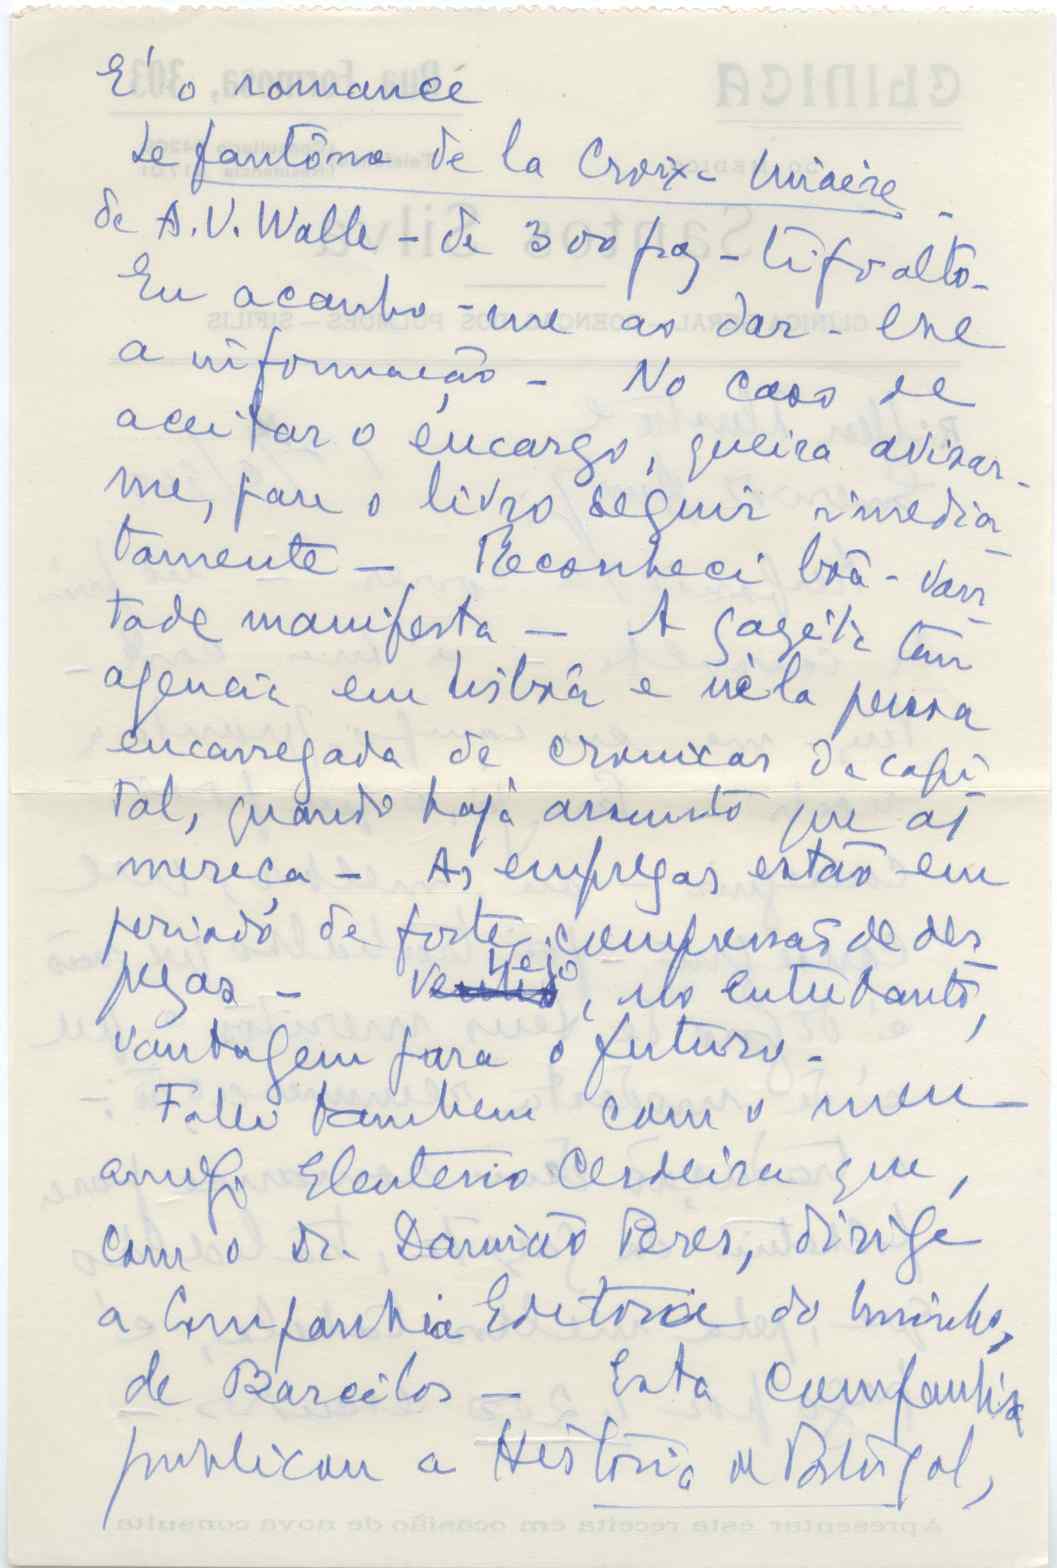 E' o romance
Le fantôme de la Croix-
de A.V. Walle - de 300 pag - tipo alto -
Eu acanho-me ao dar-lhe
a informação - No caso de
aceitar o encargo, queira avisar-
me, para o livro seguir imedia-
tamente - Reconheci bôa-von-
tade manifesta - A gazeta tem
agencia em Lisbôa e nela pessoa
encarregada de cronicas da capi
tal, quando haja assunto que as
mereça - As empresas estão em
periodo de forte compressão de des
pezas - Vejo, no entretanto,
vantagem para o futuro -
Falei tambem com o meu
amigo Eleuterio Cerdeira que,
com o Dr. Damião Peres, dirige
a Companhia Editora do Minho,
de Barcelos - Esta Companhia
publicou a História de Portugal,
CLINICA
Rua Formosa, 303
Santos Silva
CLINICA GERAL - DOENÇAS DOS PULMÕES - SIFILIS
Apresentar esta receita em ocasião de nova consulta